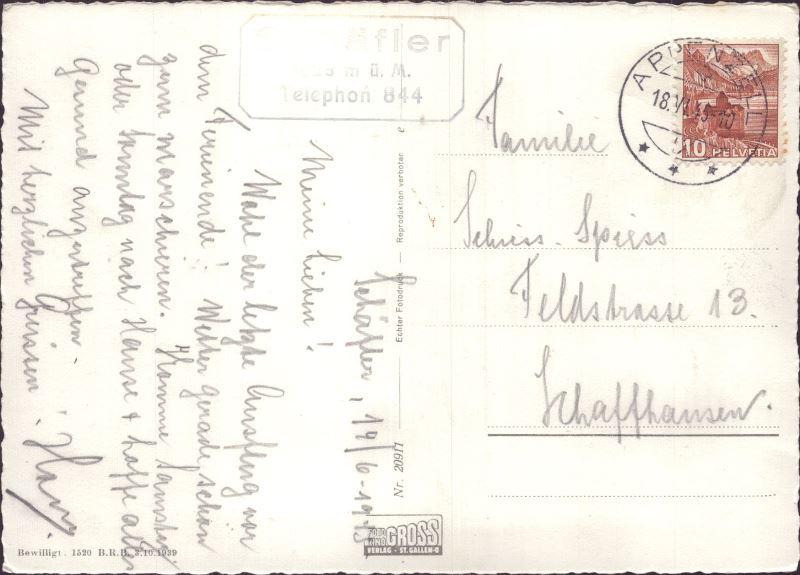 Schäfler
m ü. M.
Telephon 844
APPENZELL
18.VI.
10 HELVETIA
Schäfler, 17/6-1943
Meine Lieben!
Wäre der letzte Ausflug vor
dem Ferienende! Wetter gerade schön
zum marschieren. Komme Samstag
oder Sonntag nach Hause & hoffe alle
Gesund anzutreffen.
Mit herzlichen Grüssen! Hans.
Familie
Schiess-Spiess
Feldstrasse 13.
Schaffhausen.
Nr. 20911 — Echter Fotodruck — Reproduktion verboten
FOTO GROSS
VERLAG · ST. GALLEN-O
Bewilligt. 1520 B.R.B. 3.10.1939